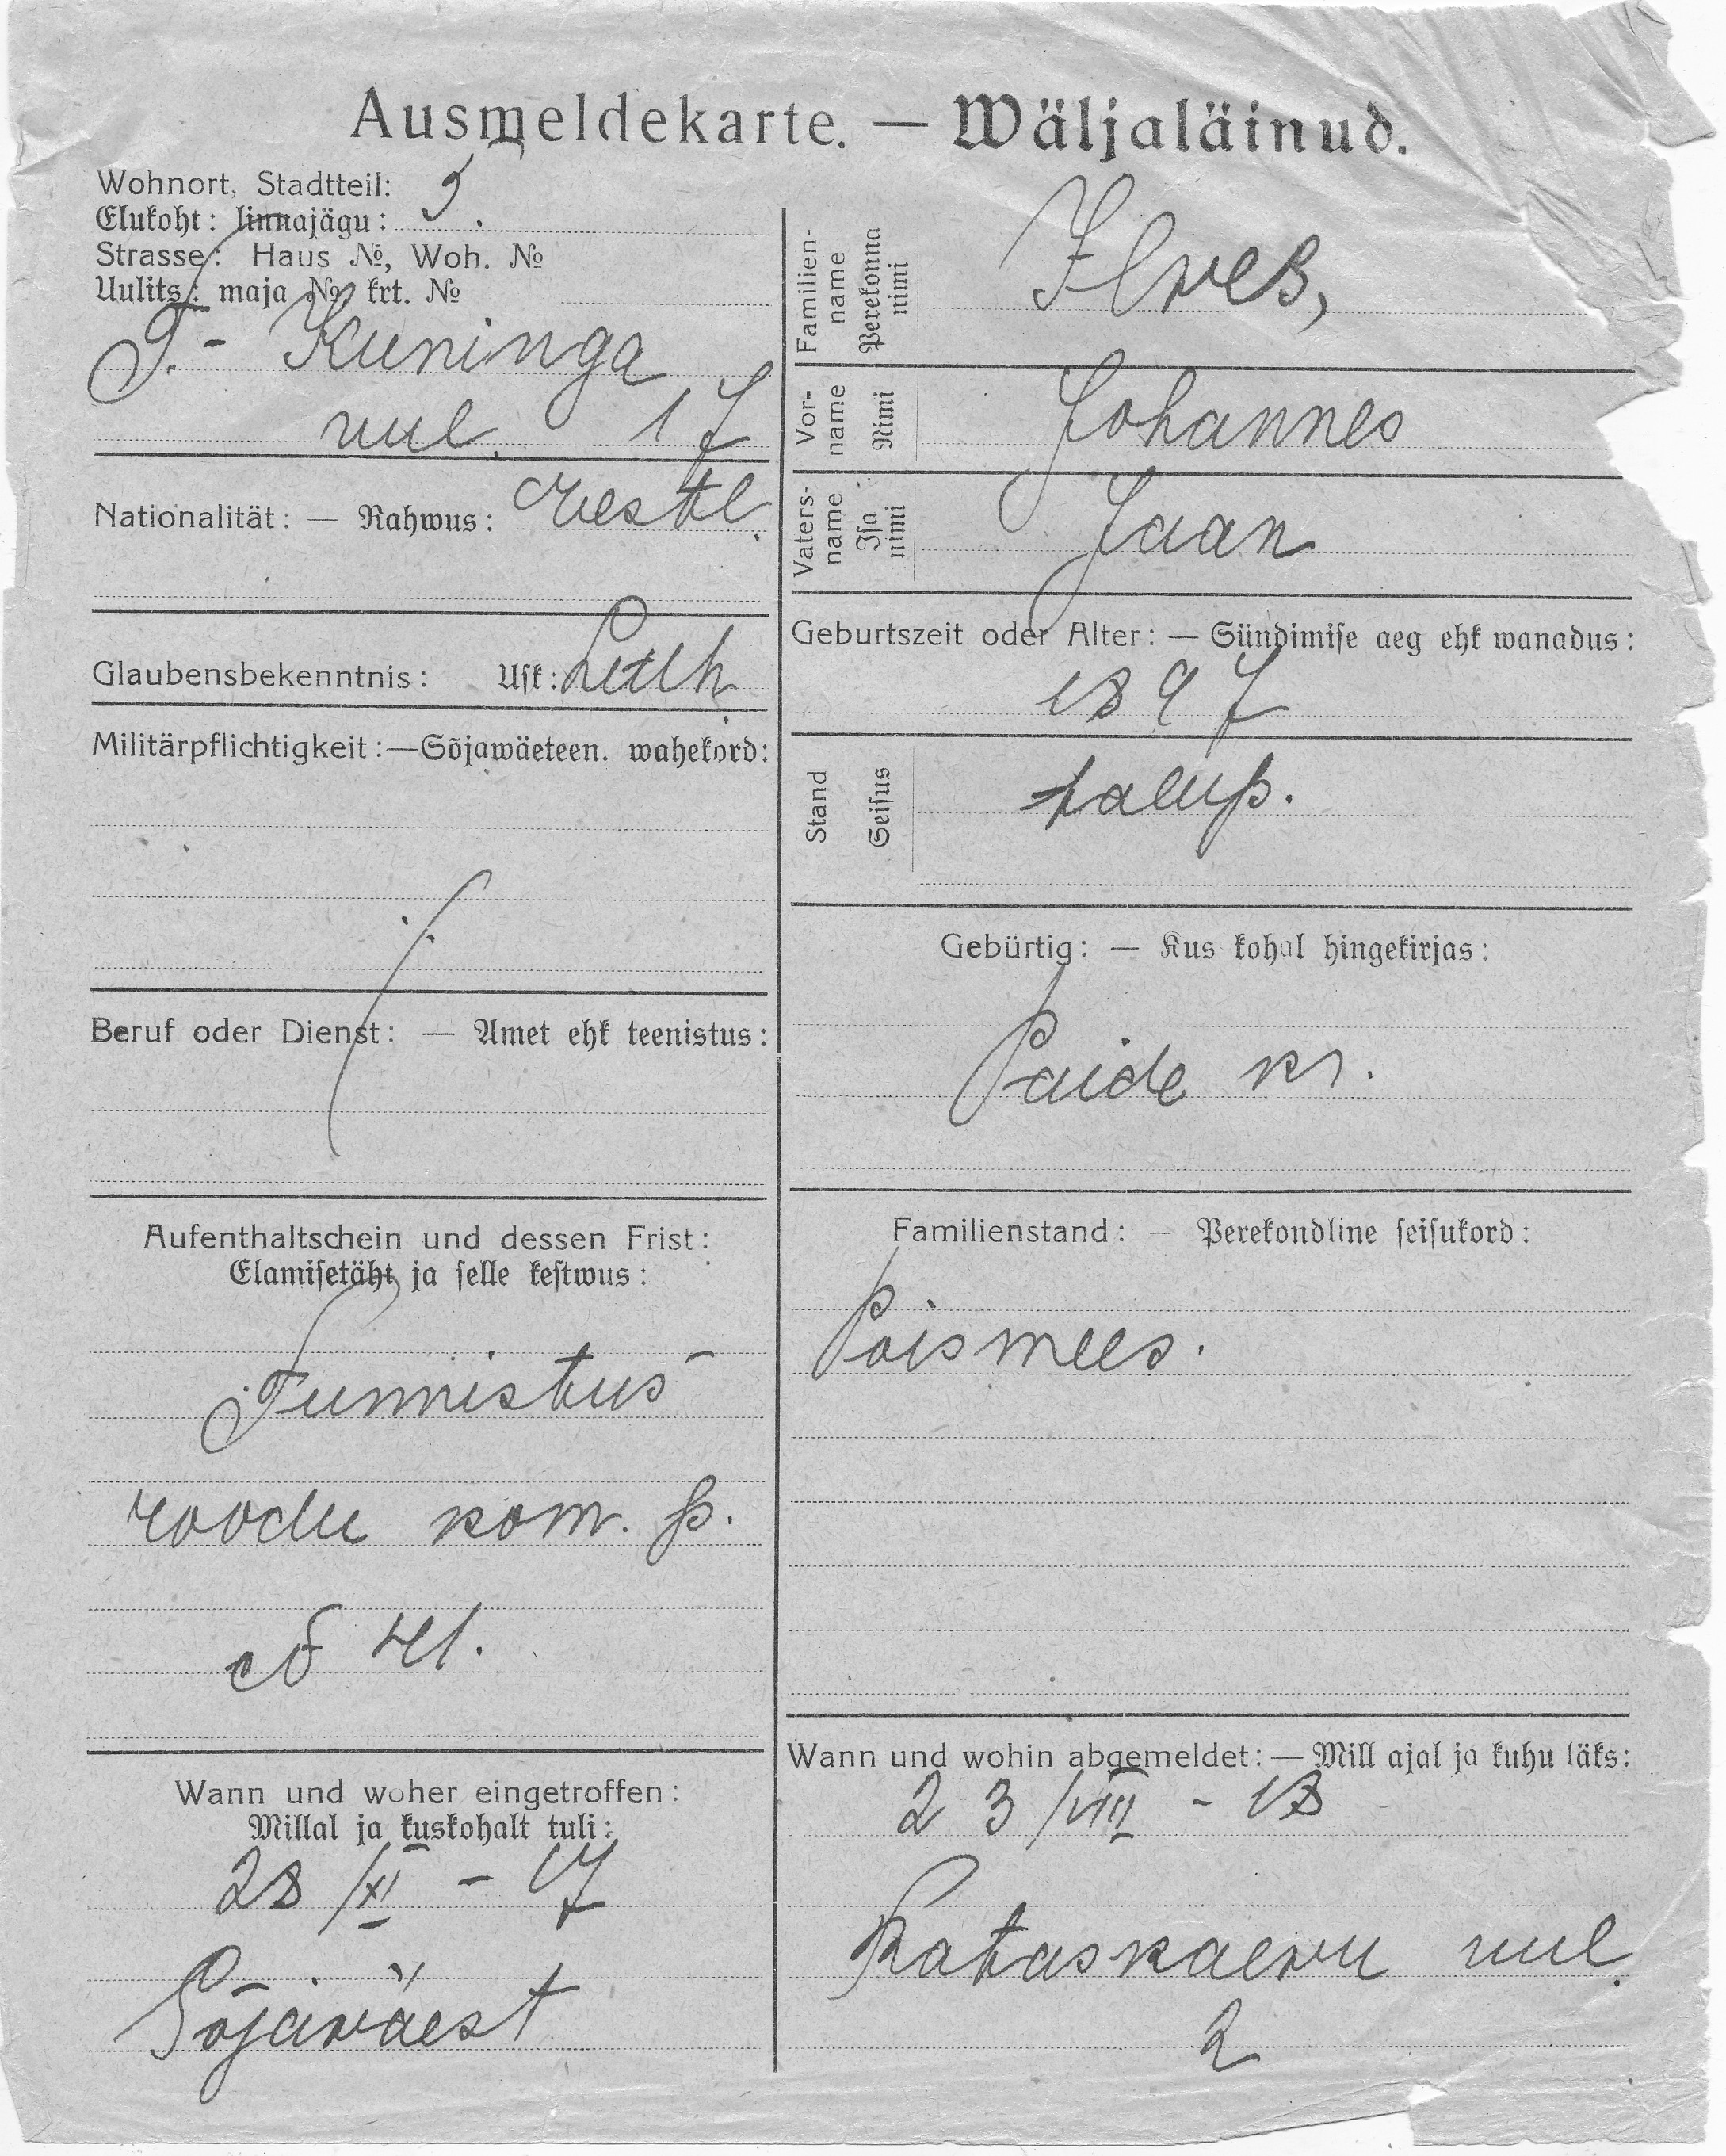 Ausmeldekarte. — Wäljaläinud.
Wohnort, Stadtteil:
Elukoht: linnajägu: 5.
Strasse: Haus №, Woh. №
Uulits: maja № krt. №
T.- Kuninga
uul. 17
Nationalität: — Rahwus: eestl.
Glaubensbekenntnis: — Usk: Luth.
Militärpflichtigkeit: — Sõjawäeteen. wahekord:
Beruf oder Dienst: — Amet ehk teenistus:
Aufenthaltschein und dessen Frist:
Elamisetäht ja selle kestwus:
Tunnistus
roodu kom. p.
№ 41.
Wann und woher eingetroffen:
Millal ja kuskohalt tuli:
28/XI - 17
Sõjaväest
Familien-
name
Perekonna
nimi
Ilves,
Vor-
name
Nimi
Johannes
Vaters-
name
Isa
nimi
Jaan
Geburtszeit oder Alter: — Sündimise aeg ehk wanadus:
1897
Stand
Seisus
talup.
Gebürtig: — Kus kohal hingekirjas:
Paide kr.
Familienstand: — Perekondline seisukord:
Poismees.
Wann und wohin abgemeldet: — Mill ajal ja kuhu läks:
23/VIII - 18
Rataskaevu uul.
2